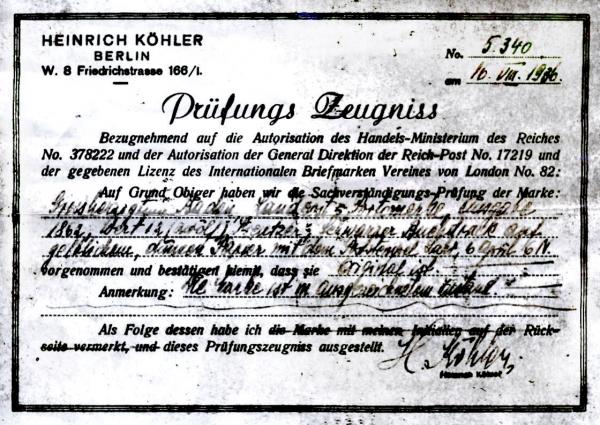 HEINRICH KÖHLER
BERLIN
W. 8 Friedrichstrasse 166/I.
No. 5.340
am 16. VIII. 1936.
Prüfungs Zeugniss
Bezugnehmend auf die Autorisation des Handels-Ministerium des Reiches
No. 378222 und der Autorisation der General Direktion der Reich-Post No. 17219 und
der gegebenen Lizenz des Internationalen Briefmarken Vereines von London No. 82:
Auf Grund Obiger haben wir die Sachverständigungs-Prüfung der Marke:
Grossherzogtum Baden, Landpost
1862, schwarzer auf
dünnem Papier mit dem
vorgenommen und bestätigen hiemit, dass sie original ist.
Anmerkung: ist in
Als Folge dessen habe ich die Marke mit meinen Initialien auf der Rück-
seite vermerkt, und dieses Prüfungszeugniss ausgestellt.
H. Köhler
Heinrich Köhler